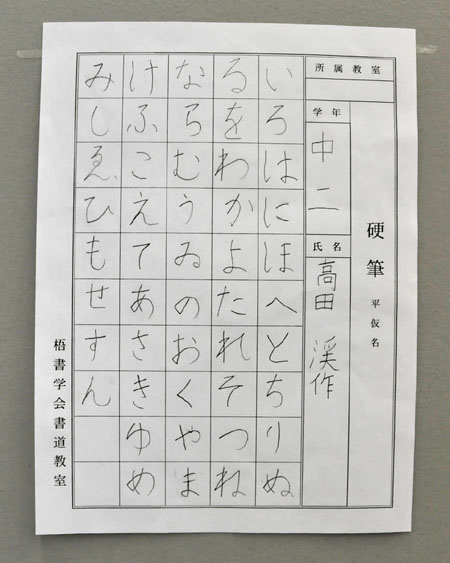 硬筆 平仮名
所属教室
学年
中二
氏名
高田 渓作
いろはにほへとちりぬ
るをわかよたれそつね
ならむうゐのおくやま
けふこえてあさきゆめ
みしゑひもせすん
梧書学会書道教室